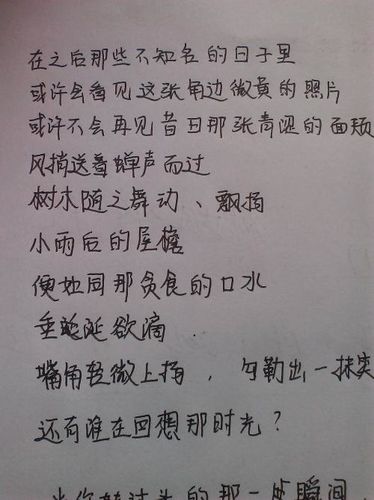 在之后那些不知名的日子里
或许会看见这张角边微黄的照片
或许不会再见昔日那张青涩的面颊
风捎送着蝉声而过
树木随之舞动、飘扬
小雨后的屋檐
便如同那贪食的口水
垂蜒涎欲滴
嘴角轻微上扬，勾勒出一抹笑
还有谁在回想那时光？
当你转过头的那一瞬间